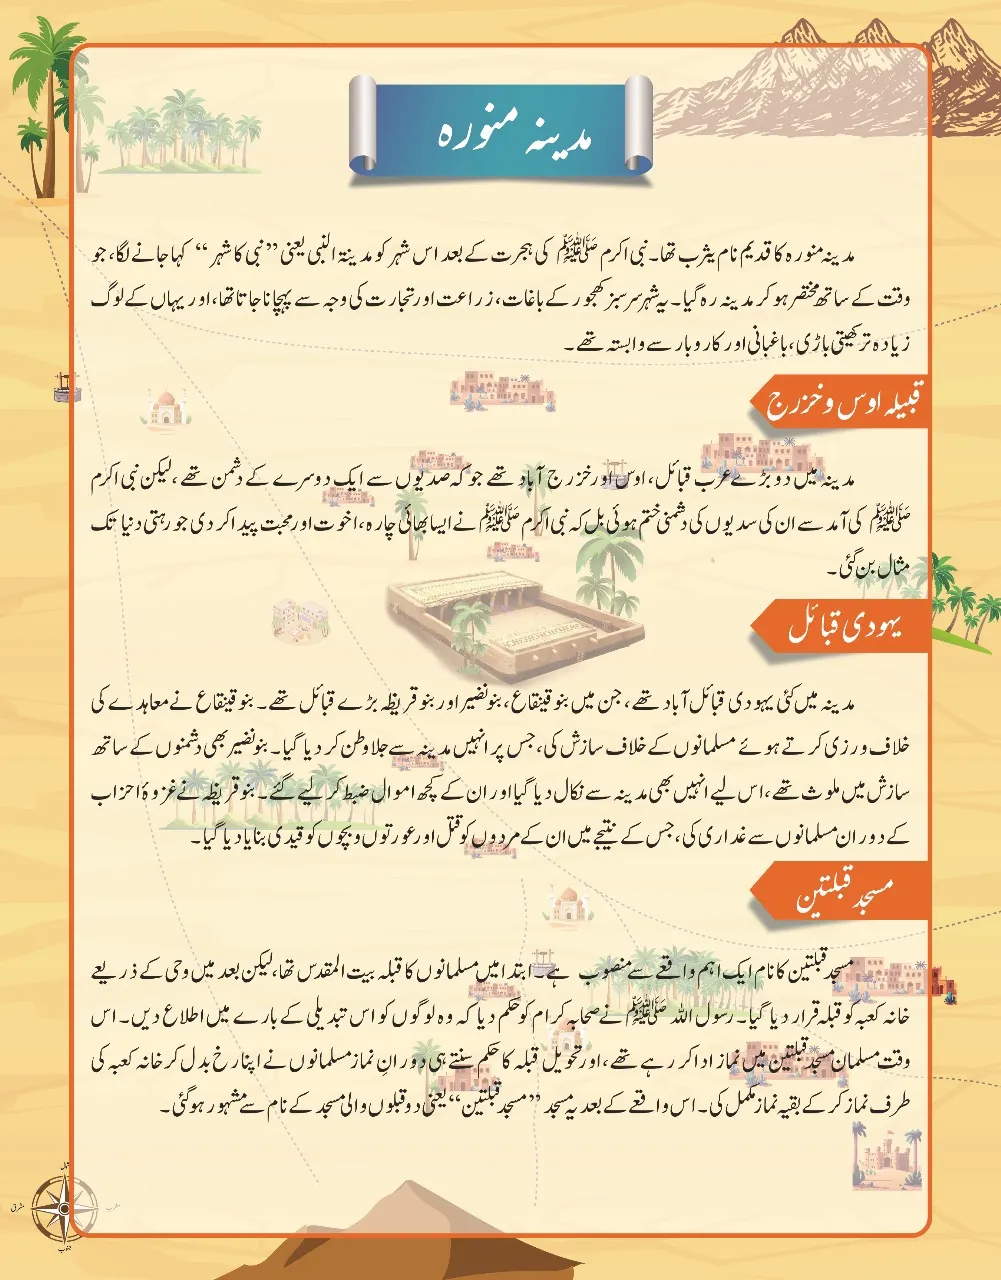 مدینہ منورہ
مدینہ منورہ کا قدیم نام یثرب تھا۔ نبی اکرم ﷺ کی ہجرت کے بعد اس شہر کو مدینۃ النبی یعنی ”نبی کا شہر“ کہا جانے لگا، جو
وقت کے ساتھ مختصر ہو کر مدینہ رہ گیا۔ یہ شہر سرسبز کھجور کے باغات، زراعت اور تجارت کی وجہ سے پہچانا جاتا تھا، اور یہاں کے لوگ
زیادہ تر کھیتی باڑی، باغبانی اور کاروبار سے وابستہ تھے۔
قبیلہ اوس و خزرج
مدینہ میں دو بڑے عرب قبائل، اوس اور خزرج آباد تھے جو کہ صدیوں سے ایک دوسرے کے دشمن تھے، لیکن نبی اکرم
ﷺ کی آمد سے ان کی سدیوں کی دشمنی ختم ہوئی بل کہ نبی اکرم ﷺ نے ایسا بھائی چارہ، اخوت اور محبت پیدا کر دی جو رہتی دنیا تک
مثال بن گئی۔
یہودی قبائل
مدینہ میں کئی یہودی قبائل آباد تھے، جن میں بنو قینقاع، بنو نضیر اور بنو قریظہ بڑے قبائل تھے۔ بنو قینقاع نے معاہدے کی
خلاف ورزی کرتے ہوئے مسلمانوں کے خلاف سازش کی، جس پر انہیں مدینہ سے جلا وطن کر دیا گیا۔ بنو نضیر بھی دشمنوں کے ساتھ
سازش میں ملوث تھے، اس لیے انہیں بھی مدینہ سے نکال دیا گیا اور ان کے کچھ اموال ضبط کر لیے گئے۔ بنو قریظہ نے غزوۂ احزاب
کے دوران مسلمانوں سے غداری کی، جس کے نتیجے میں ان کے مردوں کو قتل اور عورتوں و بچوں کو قیدی بنایا دیا گیا۔
مسجد قبلتین
مسجد قبلتین کا نام ایک اہم واقعے سے منصوب ہے۔ ابتدا میں مسلمانوں کا قبلہ بیت المقدس تھا، لیکن بعد میں وحی کے ذریعے
خانہ کعبہ کو قبلہ قرار دیا گیا۔ رسول اللہ ﷺ نے صحابہ کرام کو حکم دیا کہ وہ لوگوں کو اس تبدیلی کے بارے میں اطلاع دیں۔ اس
وقت مسلمان مسجد قبلتین میں نماز ادا کر رہے تھے، اور تحویل قبلہ کا حکم سنتے ہی دورانِ نماز مسلمانوں نے اپنا رخ بدل کر خانہ کعبہ کی
طرف نماز کر کے بقیہ نماز مکمل کی۔ اس واقعے کے بعد یہ مسجد ”مسجد قبلتین“ یعنی دو قبلوں والی مسجد کے نام سے مشہور ہو گئی۔
شمال
مشرق
مغرب
جنوب